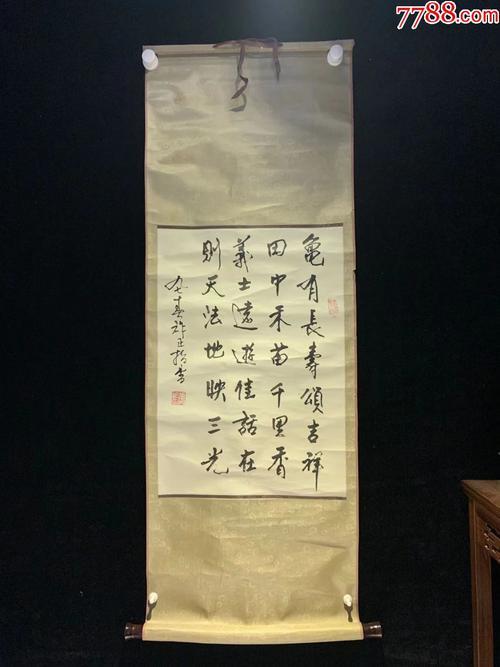 7788.com
亀有長壽頌吉祥
田中禾苗千里香
義士遠遊佳話在
則天法地映三光